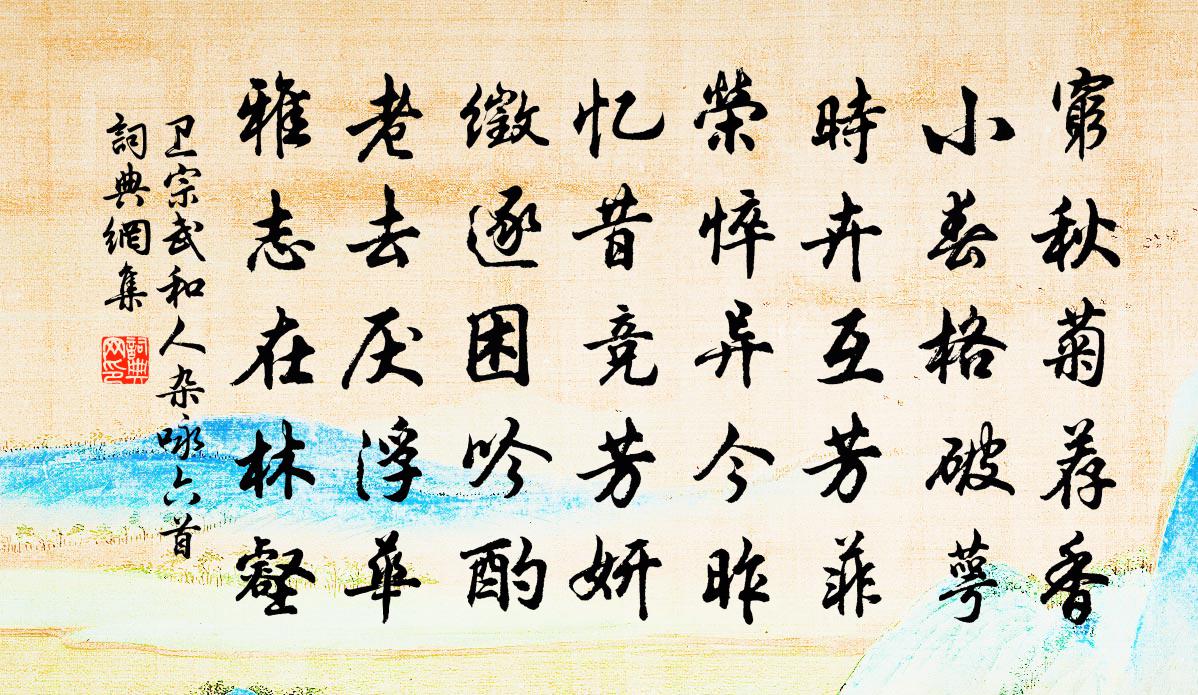 窮秋菊荐香
小春格破萼
時卉互芳菲
榮悴异今昨
忆昔竞芳妍
徵逐困吟酌
老去厌浮華
雅志在林壑
卫宗武和人杂咏六首
詞典網集
詞典网印